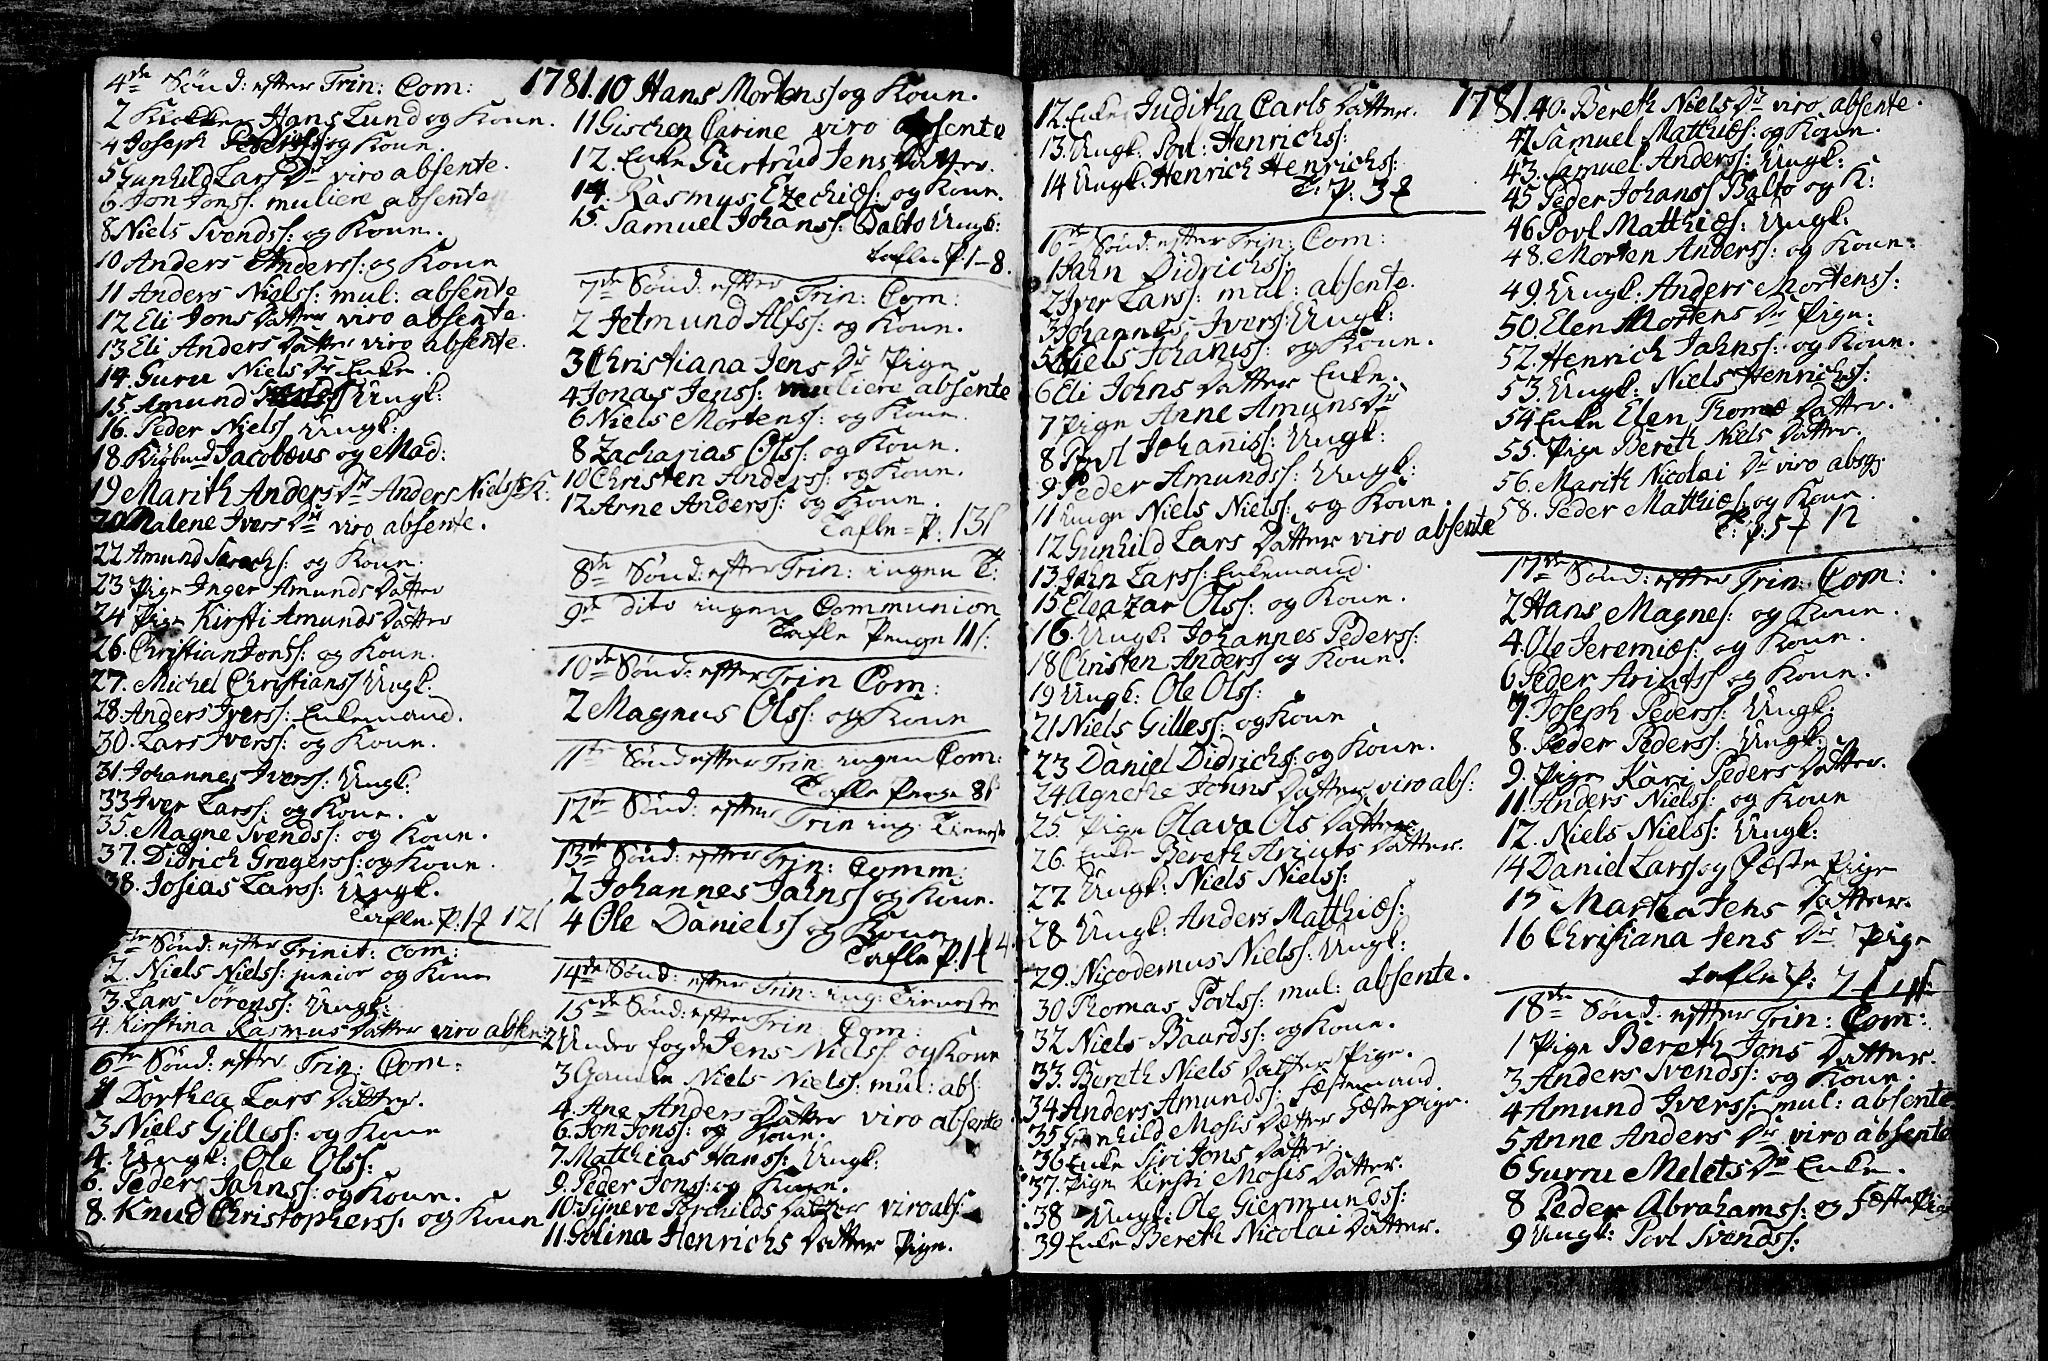 4de Sønd: efter Trin: Com:
2 Klokker Hans Lund og Kone.
4 Joseph Pederss: og Kone.
5 Gunhild Lars Dr viro absente.
6. Jon Jonss: muliere absente
8 Niels Svendss: og Kone.
10 Anders Anderss: og Kone
11 Anders Nielss: mul: absente
12 Eli Jons Datter viro absente.
13 Eli Anders Datter viro absente.
14. Guru Niels Dr Enke.
15. Amund Ungk:
16. Peder Nielss Ungk:
18. Kiøbmd Jacobæus og Mad:
19 Marith Anders Dr Anders Nielss K:
20 Malene Ivers Dr viro absente.
22 Amund og Kone.
23 Pige Inger Amunds Datter
24 Pige Kirsti Amunds Datter
26. Christian Jonss: og Kone.
27. Michel Christianss Ungk:
28 Anders Iverss: Enkemand.
30. Lars Iverss: og Kone.
31. Johannes Iverss: Ungk:
33 Iver Larss: og Kone.
35. Magne Svendss: og Kone.
37. Didrich Gregerss: og Kone.
38. Josias Larss: Ungk.
Tafle. P. 1 12
Sønd: efter Trinit: Com:
2. Niels Nielss: junior og Kone
3. Lars Sørenss: Ungk:
4. Kirstina Rasmus Datter viro absen:
6te Sønd: efter Trin: Com:
1 Dorthea Lars Datter.
3 Niels Gilless: og Kone
4. Ungk: Ole Olss:
6. Peder Jahnss: og Kone.
8. Knud Christopherss: og Kone
1781.
10 Hans Mortenss og Kone.
11 Gischen Carine viro absente
12. Enke Giertrud Jens Datter.
14. Rasmus Ezechiæs: og Kone.
15. Samuel Johanss: Balto Ungk:
Tafle P. 1-8.
7de Sønd: efter Trin: Com:
2 Jetmund Alfss: og Kone.
3 Christiana Jens Dr Pige
4 Jonas Jenss: muliere absente
6 Niels Mortenss: og Kone.
8 Zacharias Olss: og Kone.
10 Christen Anderss: og Kone.
12 Arne Anderss: og Kone.
Tafle = P. 13
8de Sønd: efter Trin: ingen T:
9de dito ingen Communion
Tafle Penge 11
10de Sønd: efter Trin Com:
2 Magnus Olss: og Kone
11te Sønd efter Trin: ingen Com:
Tafle Penge 8
12te Sønd: efter Trin ing: Tieneste
13de Sønd: efter Trin: Comm:
2 Johannes Jahnss og Kone.
4 Ole Danielss og Kone
Tafle P. 1 4
14de Sønd: efter Trin: ing: Tieneste
15de Sønd: efter Trin: Com:
2 Underfogde Jens Nielss: og Kone
3 Gamle Niels Nielss: mul: abs:
4. Ane Anders Datter viro absente
6. Jon Jonss: og Kone.
7. Matthias Hanss: Ungk:
9. Peder Jonss: og Kone.
10. Signeve Torchilds Datter viro abs:
11. Golina Henrichs Datter Pige.
12. Enke Juditha Carls Datter.
13. Ungk. Povl: Henrichs:
14 Ungk. Henrich Henrichs:
T. P. 3
16de Sønd: efter Trin: Com:
1 Jahn Didrichs:
2 Iver Larss: mul: absente.
3 Johannes Ivers: Ungk:
5 Niels Johaniss: og Kone.
6 Eli Johns Datter Enke.
7 Pige Anne Amuns Dr
8 Povl Johaniss: Ungk:
9. Peder Amundss: Ungk:
11 Unge Niels Nielss: og Kone.
12 Gunhild Lars Datter viro absente
13 John Larss: Enkemand.
15 Eleazar Olss: og Kone.
16. Ungk. Johannes Pederss:
18 Christen Anderss og Kone.
19 Ungk: Ole Olss:
21 Niels Gilless: og Kone
23 Daniel Didrichs: og Kone.
24 Agnethe Johns Datter viro abs:
25. Pige Olava Ols Datter
26. Enke Bereth Arints Datter.
27 Ungk: Niels Nielss:
28 Ungk: Anders Matthiæs:
29. Nicodemus Nielss: Ungk:
30 Thomas Povlss: mul: absente.
32 Niels Baardss: og Kone.
33. Bereth Niels Datter Pige.
34 Anders Amundss: Festemand.
35 Gunhild Mosis Datter Fæste pige.
36 Enke Siri Jons Datter.
37. Pige Kirsti Mosis Datter.
38 Ungk: Ole Giermundss:
39 Enke Bereth Nicolai Datter.
1781
40. Bereth Niels Dr viro absente.
42 Samuel Matthiæs: og Kone.
43. Samuel Anderss: Ungk:
45 Peder Johanss Balto og K:
46 Povl Matthiæs: Ungk:
48. Morten Anderss: og Kone:
49. Ungk: Anders Mortenss:
50. Elen Mortens Dr Pige:
52. Henrich Jahnss: og Kone.
53. Ungk: Niels Henrichss:
54 Enke Elen Thomæ Datter.
55. Pige Bereth Niels Datter.
56. Marith Nicolai Dr viro abs:
58. Peder Matthiæs: og Kone.
T: P: 5 12
17de Sønd: efter Trin: Com:
2 Hans Magnes: og Kone.
4. Ole Jeremiæs: og Kone.
6 Peder Arintss og Kone.
7. Joseph Pederss: Ungk:
8. Peder Pederss: Ungk.
9. Pige Kari Peders Datter.
11. Anders Nielss: og Kone
12. Niels Nielss: Ungk:
14 Daniel Larss og Fæste Pige
15 Martha Jens Datter.
16 Christiana Jens Dr Pige
Tafle P.
18de Sønd: efter Trin: Com:
1 Pige Bereth Jons Datter.
3 Anders Svendss: og Kone.
4 Amund Iverss: mul: absente
5 Anne Anders Dr viro absente
6 Gurru Melets Dr Enke.
8 Peder Abrahamss: og Fæste Pige
9 Ungk: Povl Svendss: